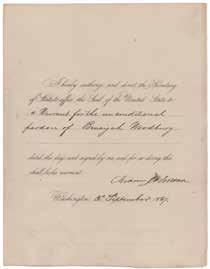 I hereby authorize and direct the Secretary
of State to affix the Seal of the United States to
a Warrant for the unconditional
pardon of Woodbury
dated this day, and signed by me and for so doing this
shall be his warrant.
Andrew Johnson
Washington, September 1867.